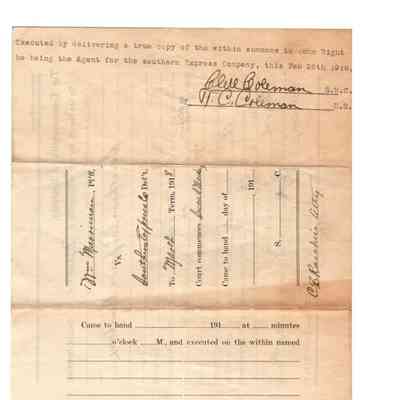 Executed by delivering a true copy of the within summons to John Hight
he being the Agent for the southern Express Company, this Feb 25th 1918,
Clell Coleman S.M.C.
W. C. Coleman D.S.
Wm Merriman, Pl'ff,
Vs.
Southern Express Co Def't.
To March Term, 1918
Court commences
Came to hand day of
191
S. C.
Atty
Came to hand 191 at minutes
o'clock M., and executed on the within named